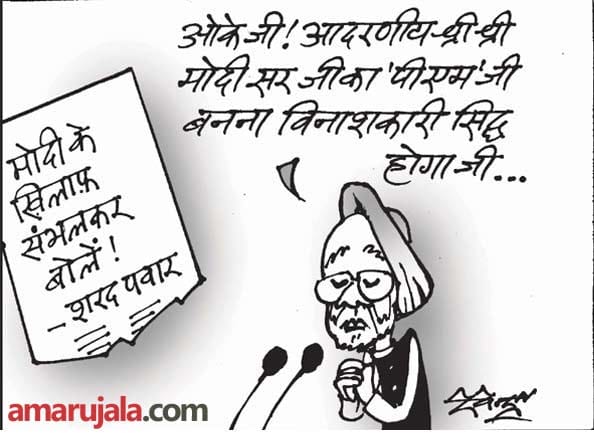 ओके जी! आदरणीय श्री श्री
मोदी सर जी का 'पीएम' जी
बनना विनाशकारी सिद्ध
होगा जी...
मोदी के
ख़िलाफ़
संभलकर
बोलें!
- शरद पवार
amarujala.com